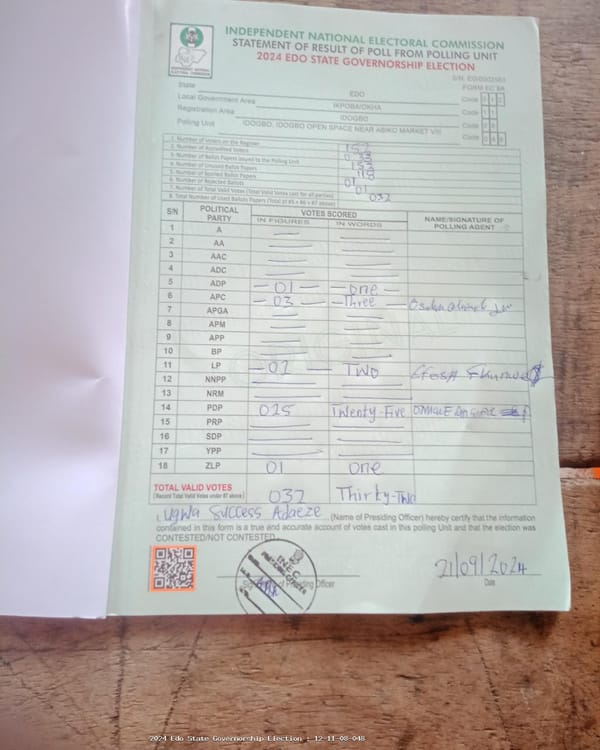 INDEPENDENT NATIONAL ELECTORAL COMMISSION
STATEMENT OF RESULT OF POLL FROM POLLING UNIT
2024 EDO STATE GOVERNORSHIP ELECTION
FORM EC 8A
State EDO Code
Local Government Area IKPOBA/OKHA Code
Registration Area IDOGBO Code
Polling Unit IDOGBO, IDOGBO OPEN SPACE NEAR ABIKO MARKET VIII Code
1. Number of Voters on the Register
2. Number of Accredited Voters
3. Number of Ballot Papers Issued to the Polling Unit
4. Number of Unused Ballot Papers
5. Number of Spoiled Ballot Papers 01
6. Number of Rejected Ballots 01
7. Number of Total Valid Votes (Total Valid Votes cast for all parties) 032
8. Total Number of Used Ballots Papers (Total of #5 + #6 + #7 above)
S/N POLITICAL PARTY VOTES SCORED NAME/SIGNATURE OF POLLING AGENT
IN FIGURES IN WORDS
1 A
2 AA
3 AAC
4 ADC
5 ADP 01 one
6 APC 03 Three
7 APGA
8 APM
9 APP
10 BP
11 LP 02 TWO
12 NNPP
13 NRM
14 PDP 025 Twenty-Five
15 PRP
16 SDP
17 YPP
18 ZLP 01 one
TOTAL VALID VOTES 032 Thirty-Two
(Record Total Valid Votes under #7 above)
I, Ugwa Success Adaeze (Name of Presiding Officer) hereby certify that the information
contained in this form is a true and accurate account of votes cast in this polling Unit and that the election was
CONTESTED/NOT CONTESTED
INEC
PRESIDING OFFICER
Signature of Presiding Officer
21/09/2024
Date
2024 Edo State Governorship Election - 12-11-08-048